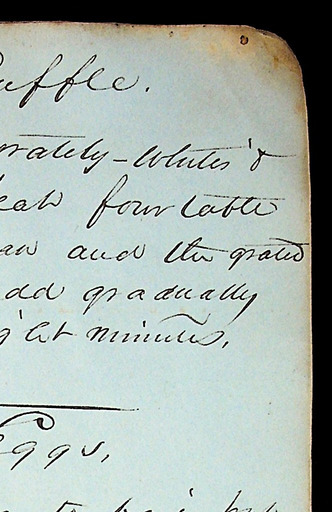 uffle.
rately - Whites &
eat four table
and the grated
dd gradually
ight minutes,
Eggs,